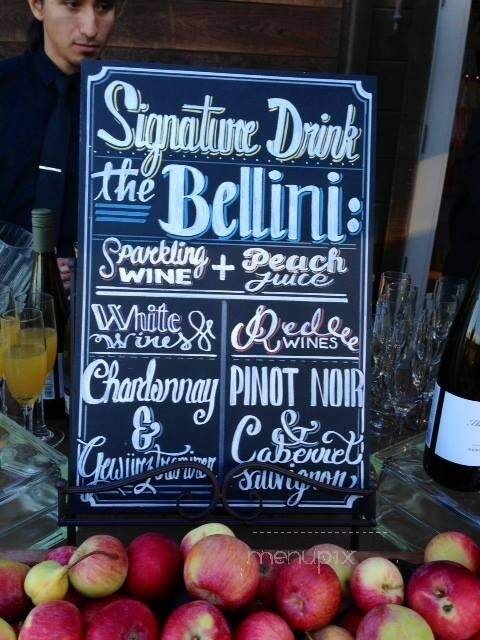 Signature Drink
the Bellini:
Sparkling WINE + Peach Juice
White Wines
Chardonnay
&
Gewürztraminer
Red WINES
PINOT NOIR
&
Cabernet
Sauvignon
menupix